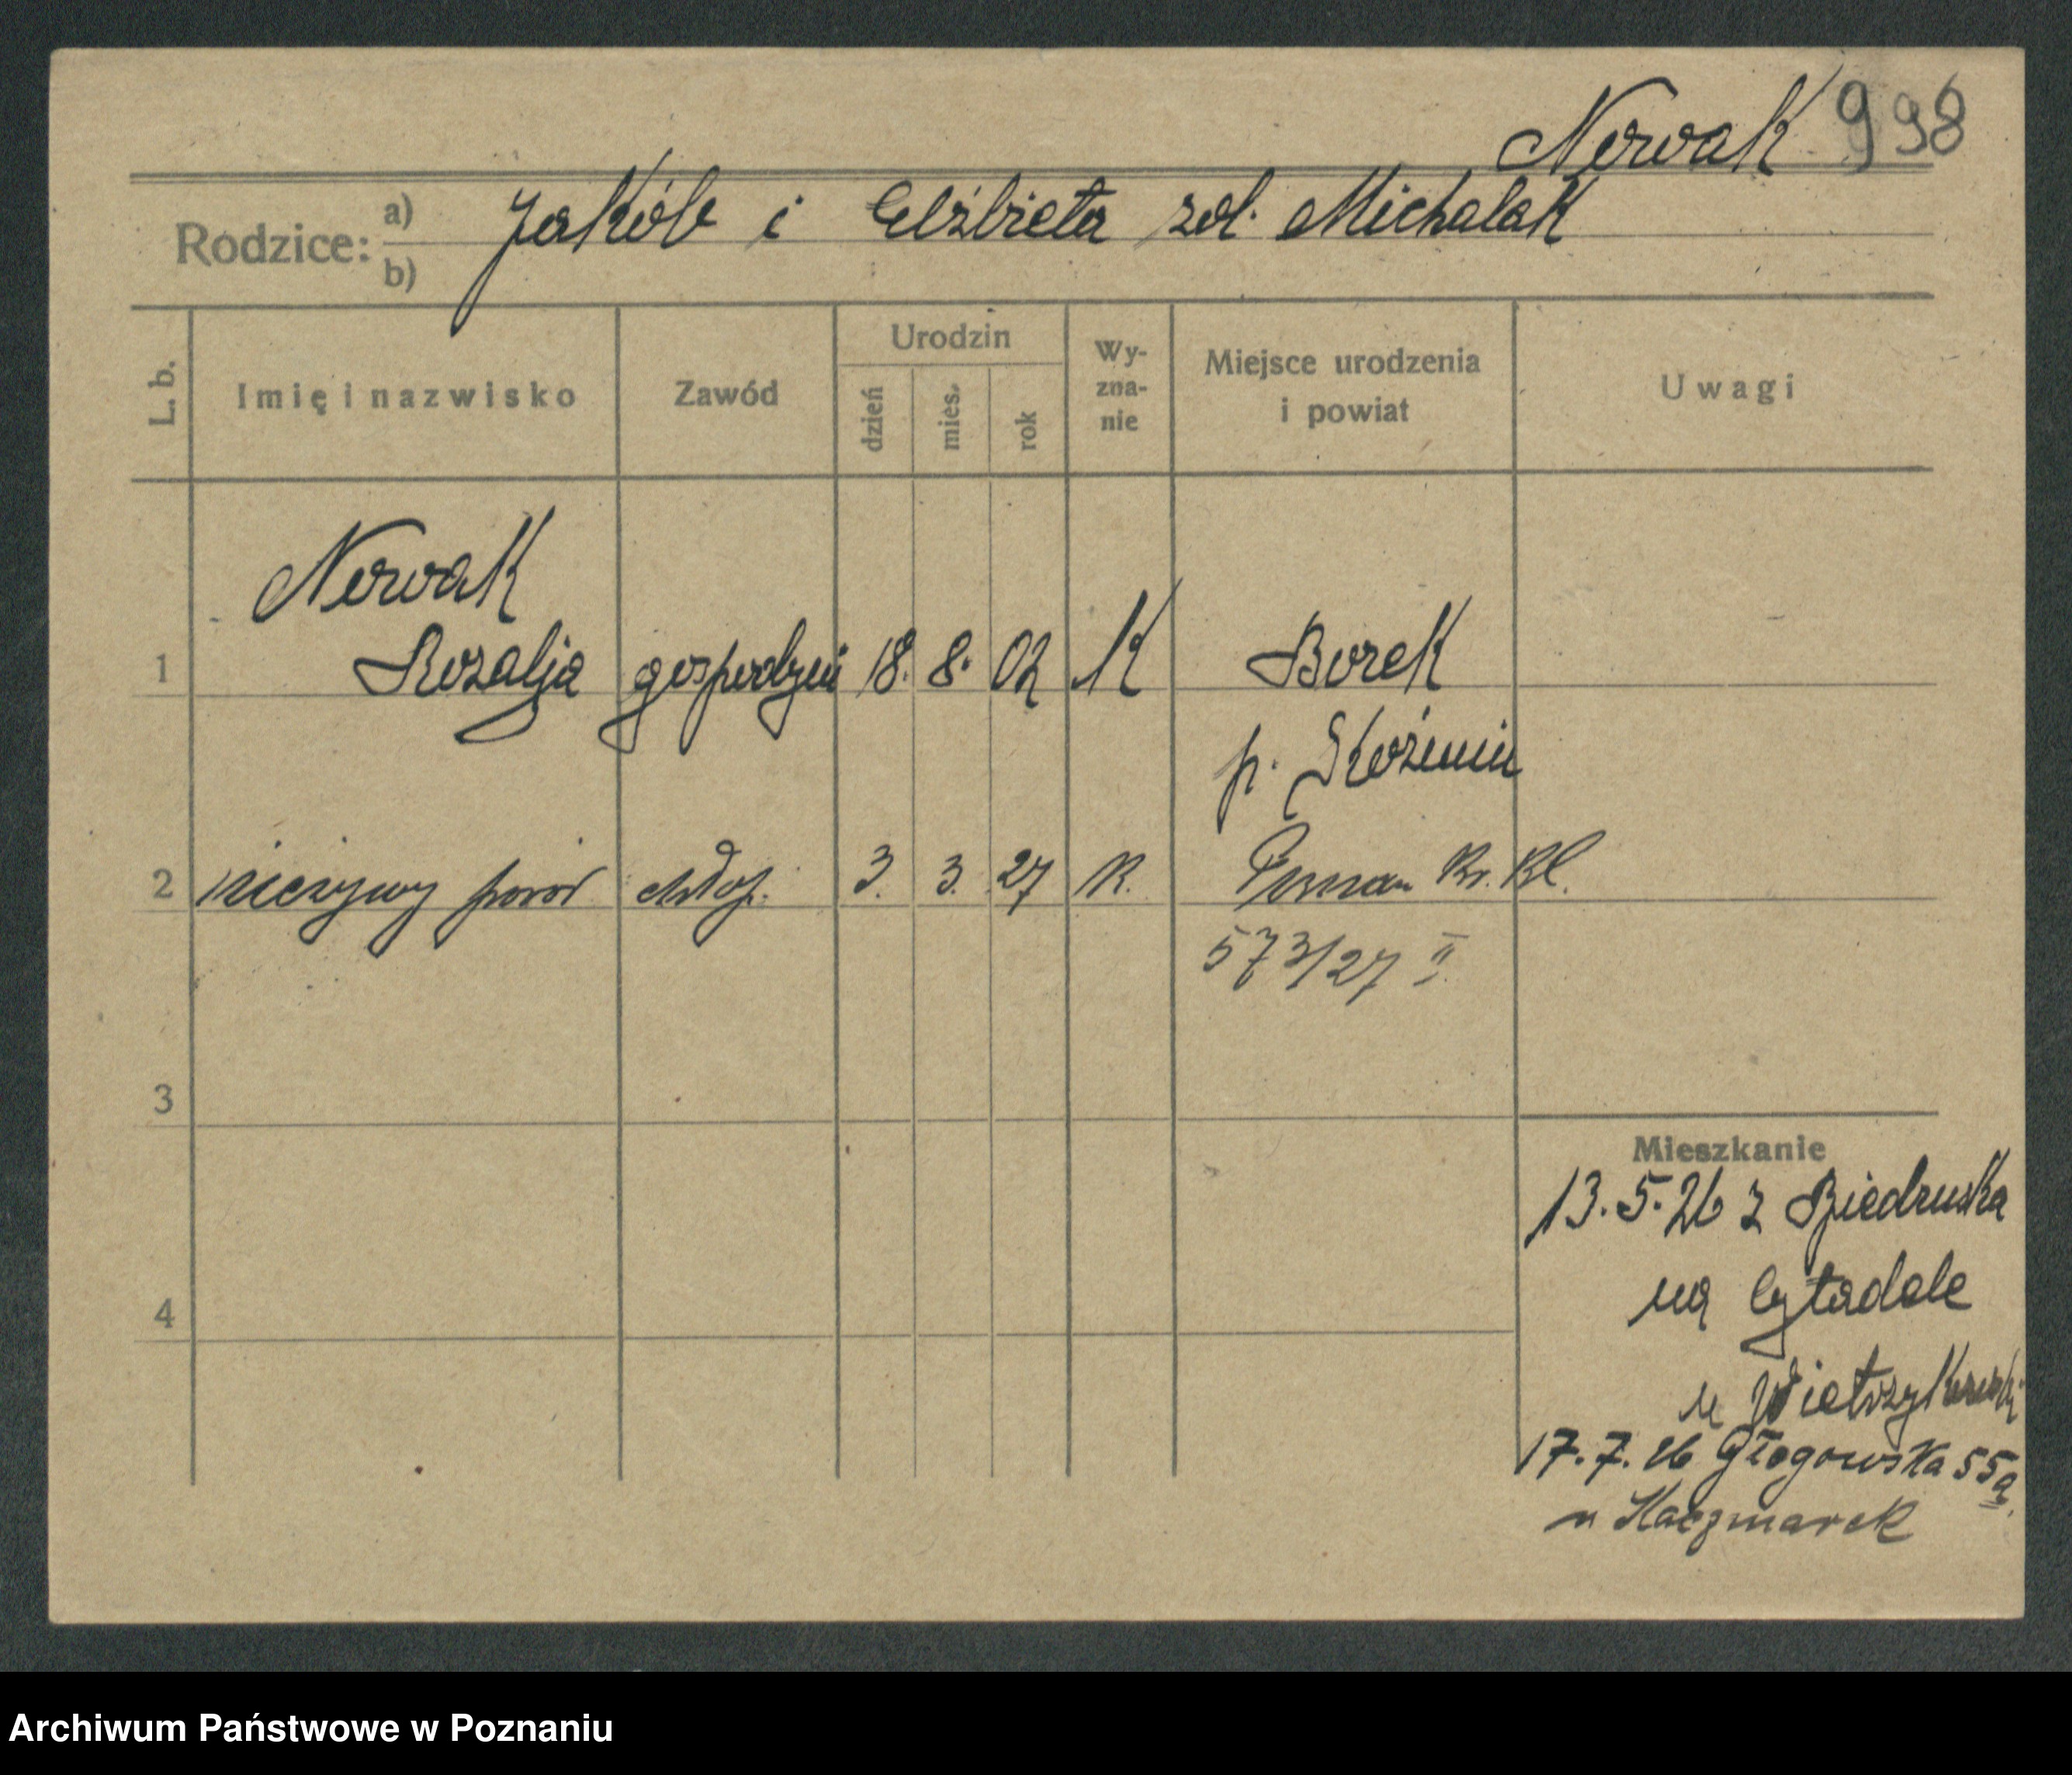 Nowak 998
Rodzice: a) Jakób i Elżbieta zd. Michalak
b)
L. b. Imię i nazwisko Zawód Urodzin dzień mies. rok Wy-zna-nie Miejsce urodzenia i powiat Uwagi
Nowak
1 Rozalja gospodyni 18. 8. 02 K Borek
p. Koźmin
2 nieżywy poród chłop. 3. 3. 27 K. Poznan
573/27 II
3
Mieszkanie
13.5.26 z Biedruska
na Cytadele
4
u
17.7.26 Głogowska 55a
u Kaczmarek
Archiwum Państwowe w Poznaniu